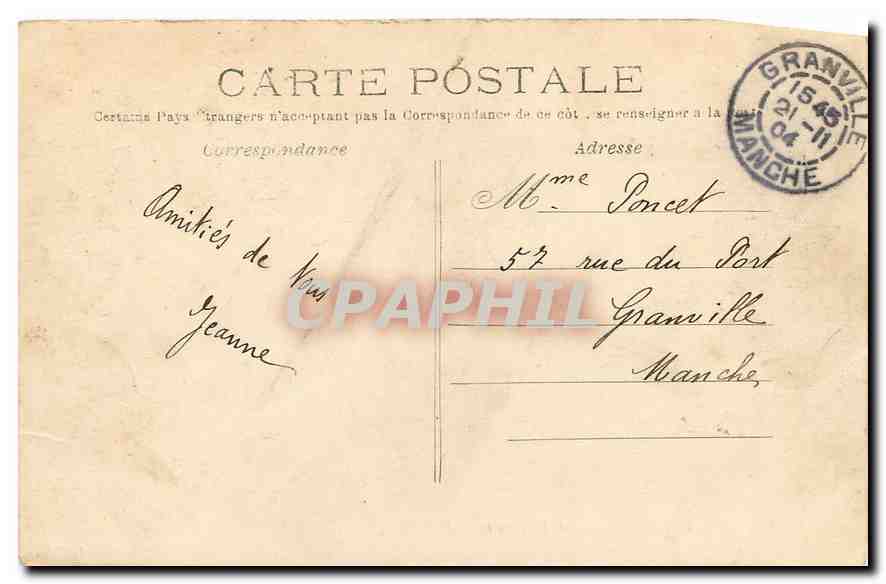 CARTE POSTALE
Certains Pays étrangers n'acceptant pas la Correspondance de ce côt, se renseigner a la
Correspondance
Adresse
GRANVILLE
15 45
21 -11
04
MANCHE
Amitiés de Vous
Jeanne
Mme Poncet
57 rue du Port
Granville
Manche
CPAPHIL